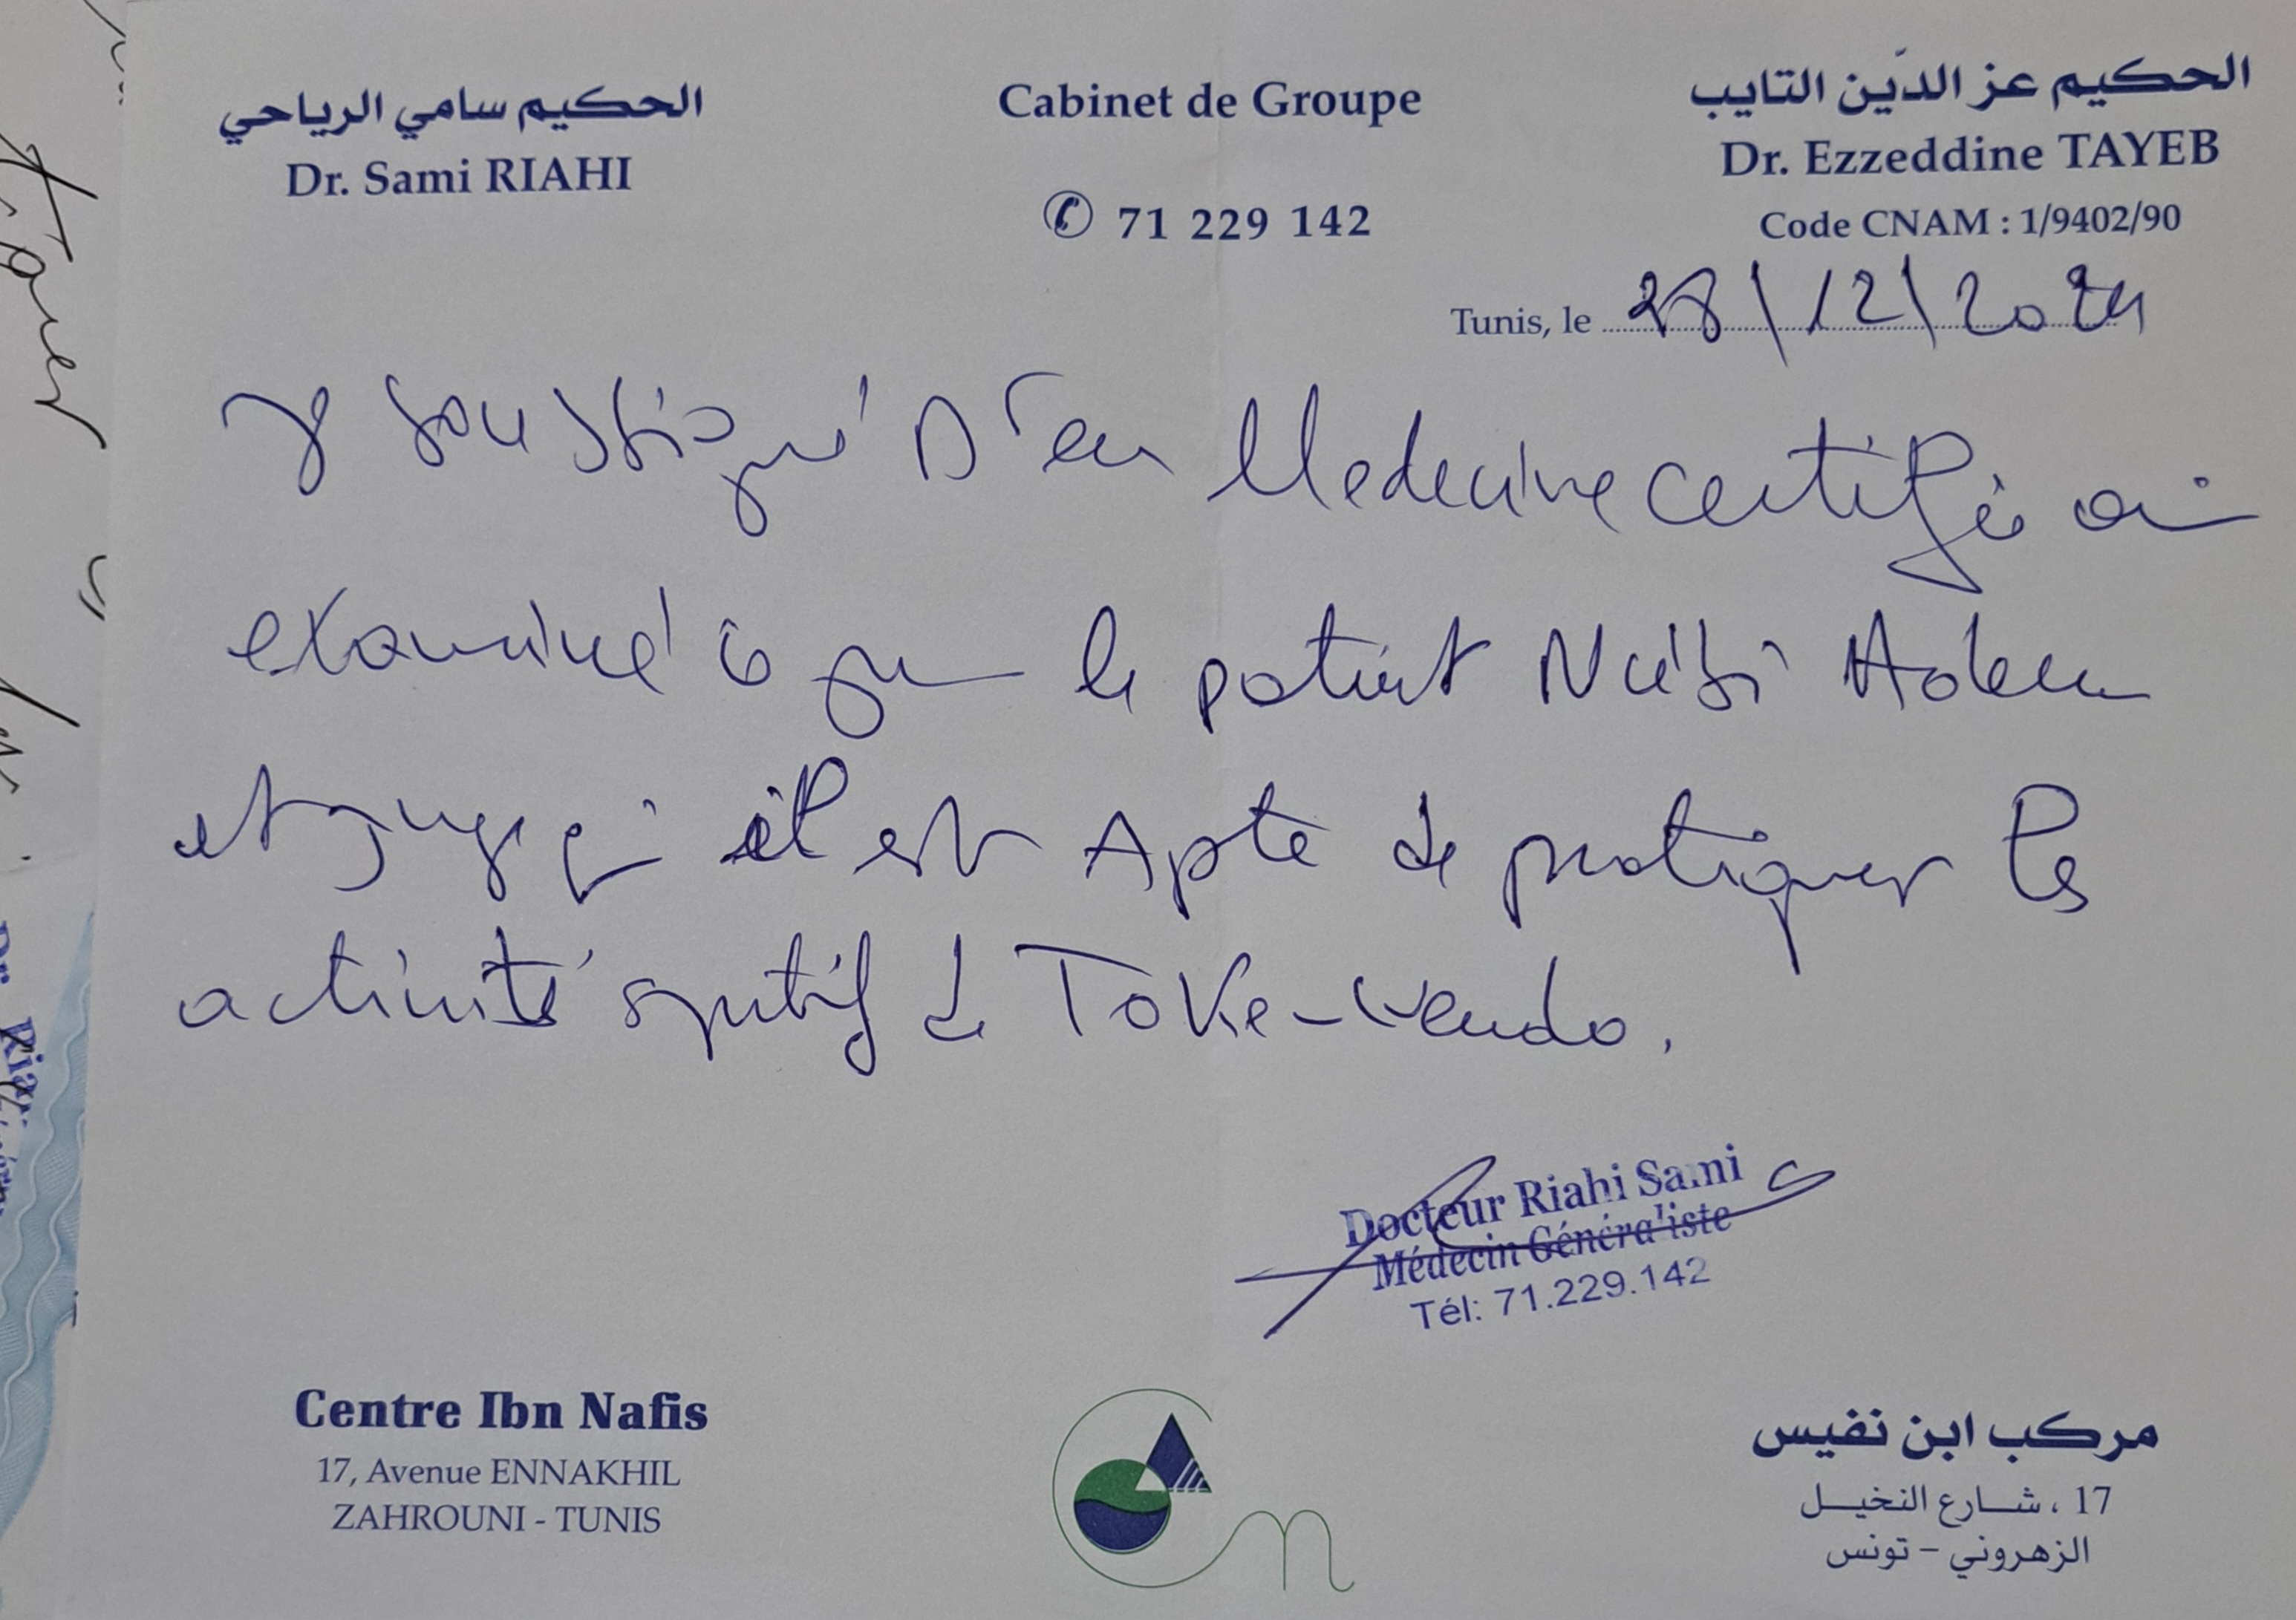 الحكيم سامي الرياحي
Dr. Sami RIAHI
Cabinet de Groupe
✆ 71 229 142
الحكيم عز الدّين التايب
Dr. Ezzeddine TAYEB
Code CNAM : 1/9402/90
Tunis, le 28/12/2024
Dr en Medecine certifie ai
examiné ce jour le patient
et juge qu'il est Apte de pratiquer les
activité sportif de
Docteur Riahi Sami
Médecin Généraliste
Tél: 71.229.142
Centre Ibn Nafis
17, Avenue ENNAKHIL
ZAHROUNI - TUNIS
مركب ابن نفيس
17 ، شارع النخيل
الزهروني - تونس